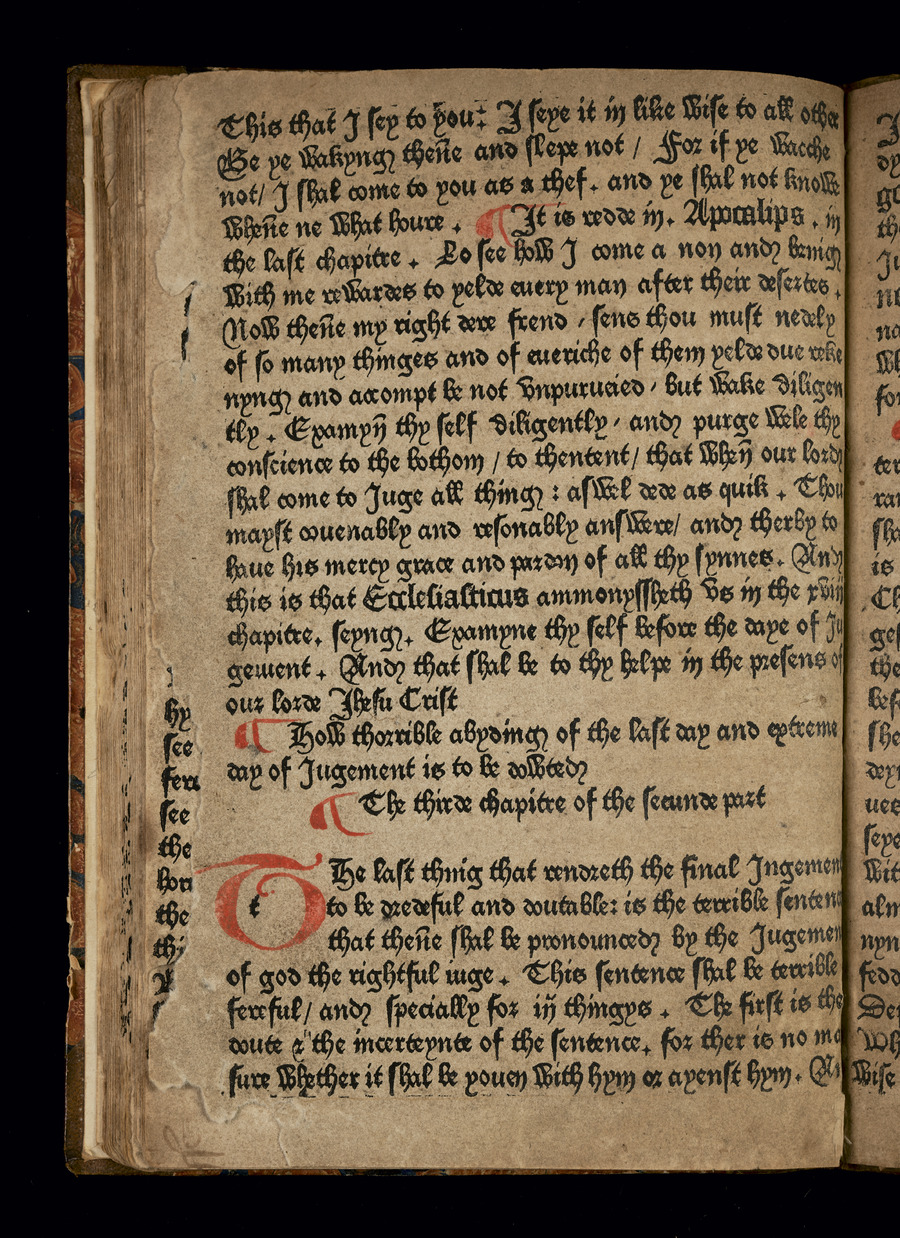 This that I sey to you: I seye it in like wise to all other
Be ye wakyng theñe and slepe not / For if ye wacche
not/ I shal come to you as a thef. and ye shal not knowe
wheñe ne what houre. ¶ It is redde in. Apocalips. in
the last chapitre. Lo see how I come a non and bring
with me rewardes to yelde euery man after their desertes.
Now theñe my right dere frend, sens thou must nedely
of so many thinges and of eueriche of them yelde due reke
nyng and acompt be not vnpurueied, but wake diligen
tly. Examyñ thy self diligently, and purge wele thy
conscience to the bothom / to thentent/ that wheñ our lord
shal come to Iuge all thing: aswel dede as quik. Thou
mayst couenably and resonably answere/ and therby to
haue his mercy grace and pardon of all thy synnes. And
this is that Ecclesiasticus ammonyssheth vs in the xviij
chapitre. seyng. Examyne thy self before the daye of Iu
gement. And that shal be to thy helpe in the presens of
our lorde Ihesu Crist
¶ How thorrible abyding of the last day and extreme
day of Iugement is to be dowted
¶ The thirde chapitre of the secunde part
THe last thnig that rendreth the final Ingemen
to be dredeful and doutable: is the terrible senten
that theñe shal be pronounced by the Iugemen
of god the rightful iuge. This sentence shal be terrible
ferful/ and specially for iij thingys. The first is the
doute & the incerteynte of the sentence. for ther is no ma
sure whether it shal be youen with hym or ayenst hym. An
hy
see
see
the
the